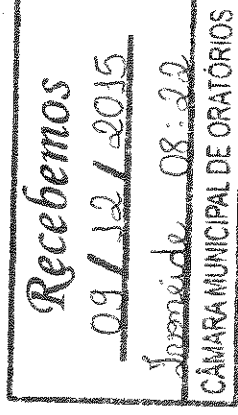 Recebemos
09/12/2015
08:22
CÂMARA MUNICIPAL DE ORATÓRIOS